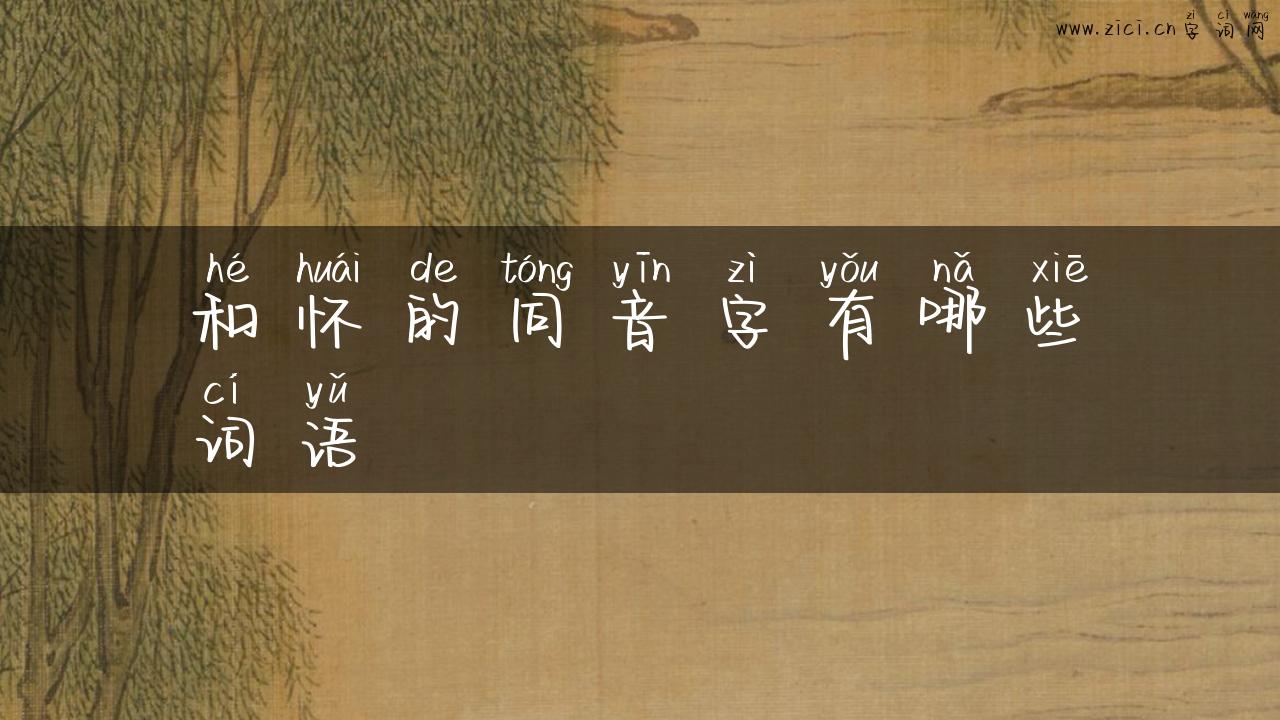 zì cí wǎng
www.zici.cn字词网
hé huái de tóng yīn zì yǒu nǎ xiē
和怀的同音字有哪些
cí yǔ
词语